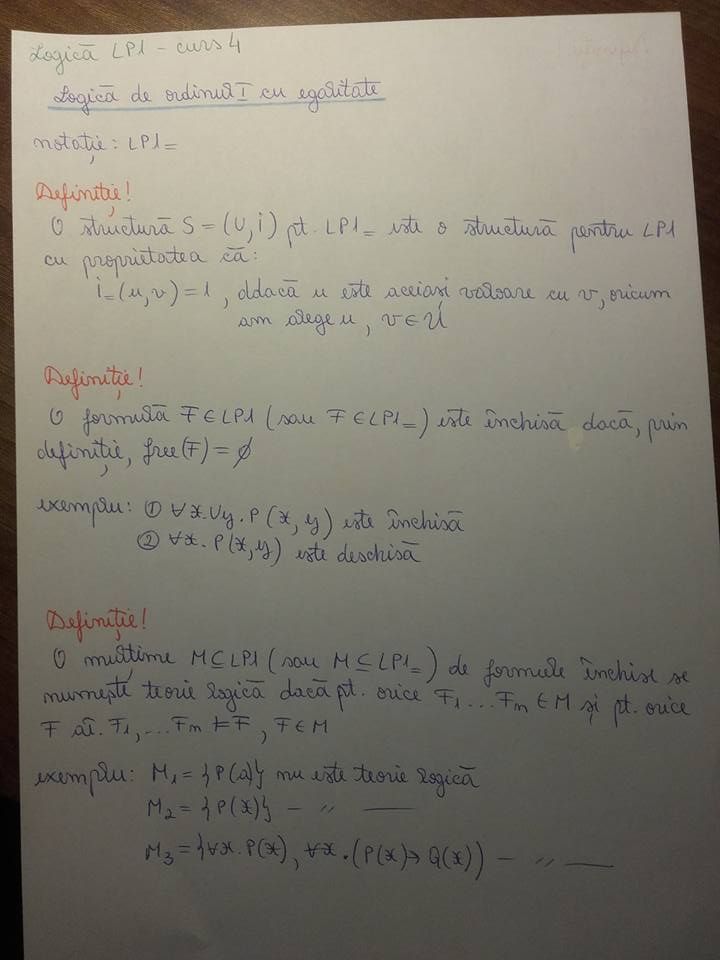 Logică LP1 - curs 4
Logică de ordinul I cu egalitate
notație: LP1=
Definiție!
O structură S = (U, i) pt. LP1= este o structură pentru LP1
cu proprietatea că:
i=(u,v) = 1, ddacă u este aceiasi valoare cu v, oricum
am alege u, v ∈ U
Definiție!
O formulă F ∈ LP1 (sau F ∈ LP1=) este închisă dacă, prin
definiție, free(F) = ∅
exemplu: ① ∀x.∀y.P(x,y) este închisă
② ∀x.P(x,y) este deschisă
Definiție!
O mulțime M ⊆ LP1 (sau M ⊆ LP1=) de formule închise se
numește teorie logică dacă pt. orice F1...Fm ∈ M și pt. orice
F aî. F1,...Fm ⊨ F, F ∈ M
exemplu: M1 = {P(a)} nu este teorie logică
M2 = {P(x)} - " —
M3 = {∀x.P(x), ∀x.(P(x) → Q(x)) - " —